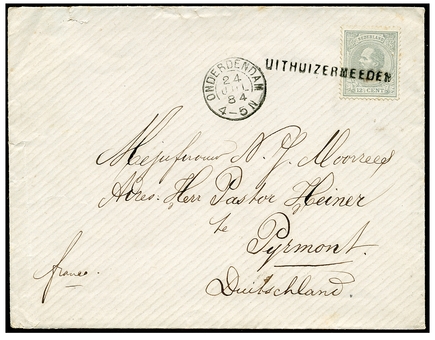 NEDERLAND
UITHUIZERMEEDEN
12½ CENT
ONDERDENDAM
24
JUL
84
4-5N
Mejufvrouw N. J. Moorrees
Adres. Herr Pastor Heiner
te
Pyrmont.
franco.
Duitschland.